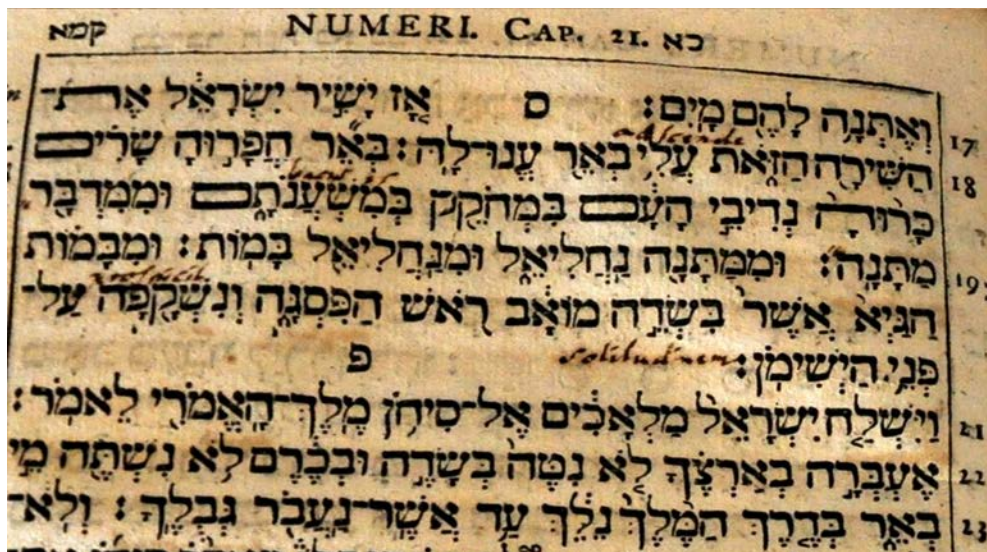 קמא NUMERI. CAP. 21. כא
וְאֶתְּנָה לָהֶם מָיִם: ס אָז יָשִׁיר יִשְׂרָאֵל אֶת־ 17
ascende
הַשִּׁירָה הַזֹּאת עֲלִי בְאֵר עֱנוּ־לָהּ: בְּאֵר חֲפָרוּהָ שָׂרִים 18
כָּרוּהָ נְדִיבֵי הָעָם בִּמְחֹקֵק בְּמִשְׁעֲנֹתָם וּמִמִּדְבָּר
מַתָּנָה: וּמִמַּתָּנָה נַחֲלִיאֵל וּמִנַּחֲלִיאֵל בָּמוֹת: וּמִבָּמוֹת 19
הַגַּיְא אֲשֶׁר בִּשְׂדֵה מוֹאָב רֹאשׁ הַפִּסְגָּה וְנִשְׁקָפָה עַל־
פְּנֵי הַיְשִׁימֹן: solitudinem פ
וַיִּשְׁלַח יִשְׂרָאֵל מַלְאָכִים אֶל־סִיחֹן מֶלֶךְ־הָאֱמֹרִי לֵאמֹר: 21
אֶעְבְּרָה בְאַרְצֶךָ לֹא נִטֶּה בְּשָׂדֶה וּבְכֶרֶם לֹא נִשְׁתֶּה מֵי 22
בְאֵר בְּדֶרֶךְ הַמֶּלֶךְ נֵלֵךְ עַד אֲשֶׁר־נַעֲבֹר גְּבֻלֶךָ: וְלֹא־ 23